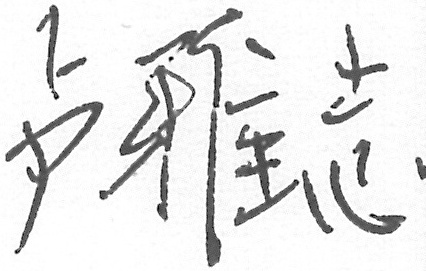 卢雅志